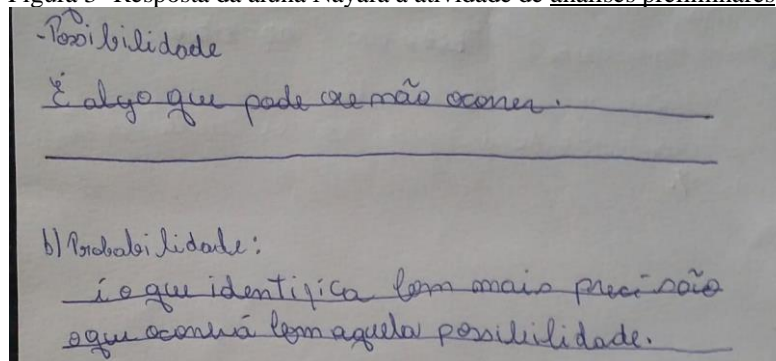 Figura 3- Resposta da aluna Nayara à atividade de análises preliminares
-Possibilidade
É algo que pode ou não ocorrer.
b) Probabilidade:
é o que identifica com mais precisão
o que ocorrerá com aquela possibilidade.